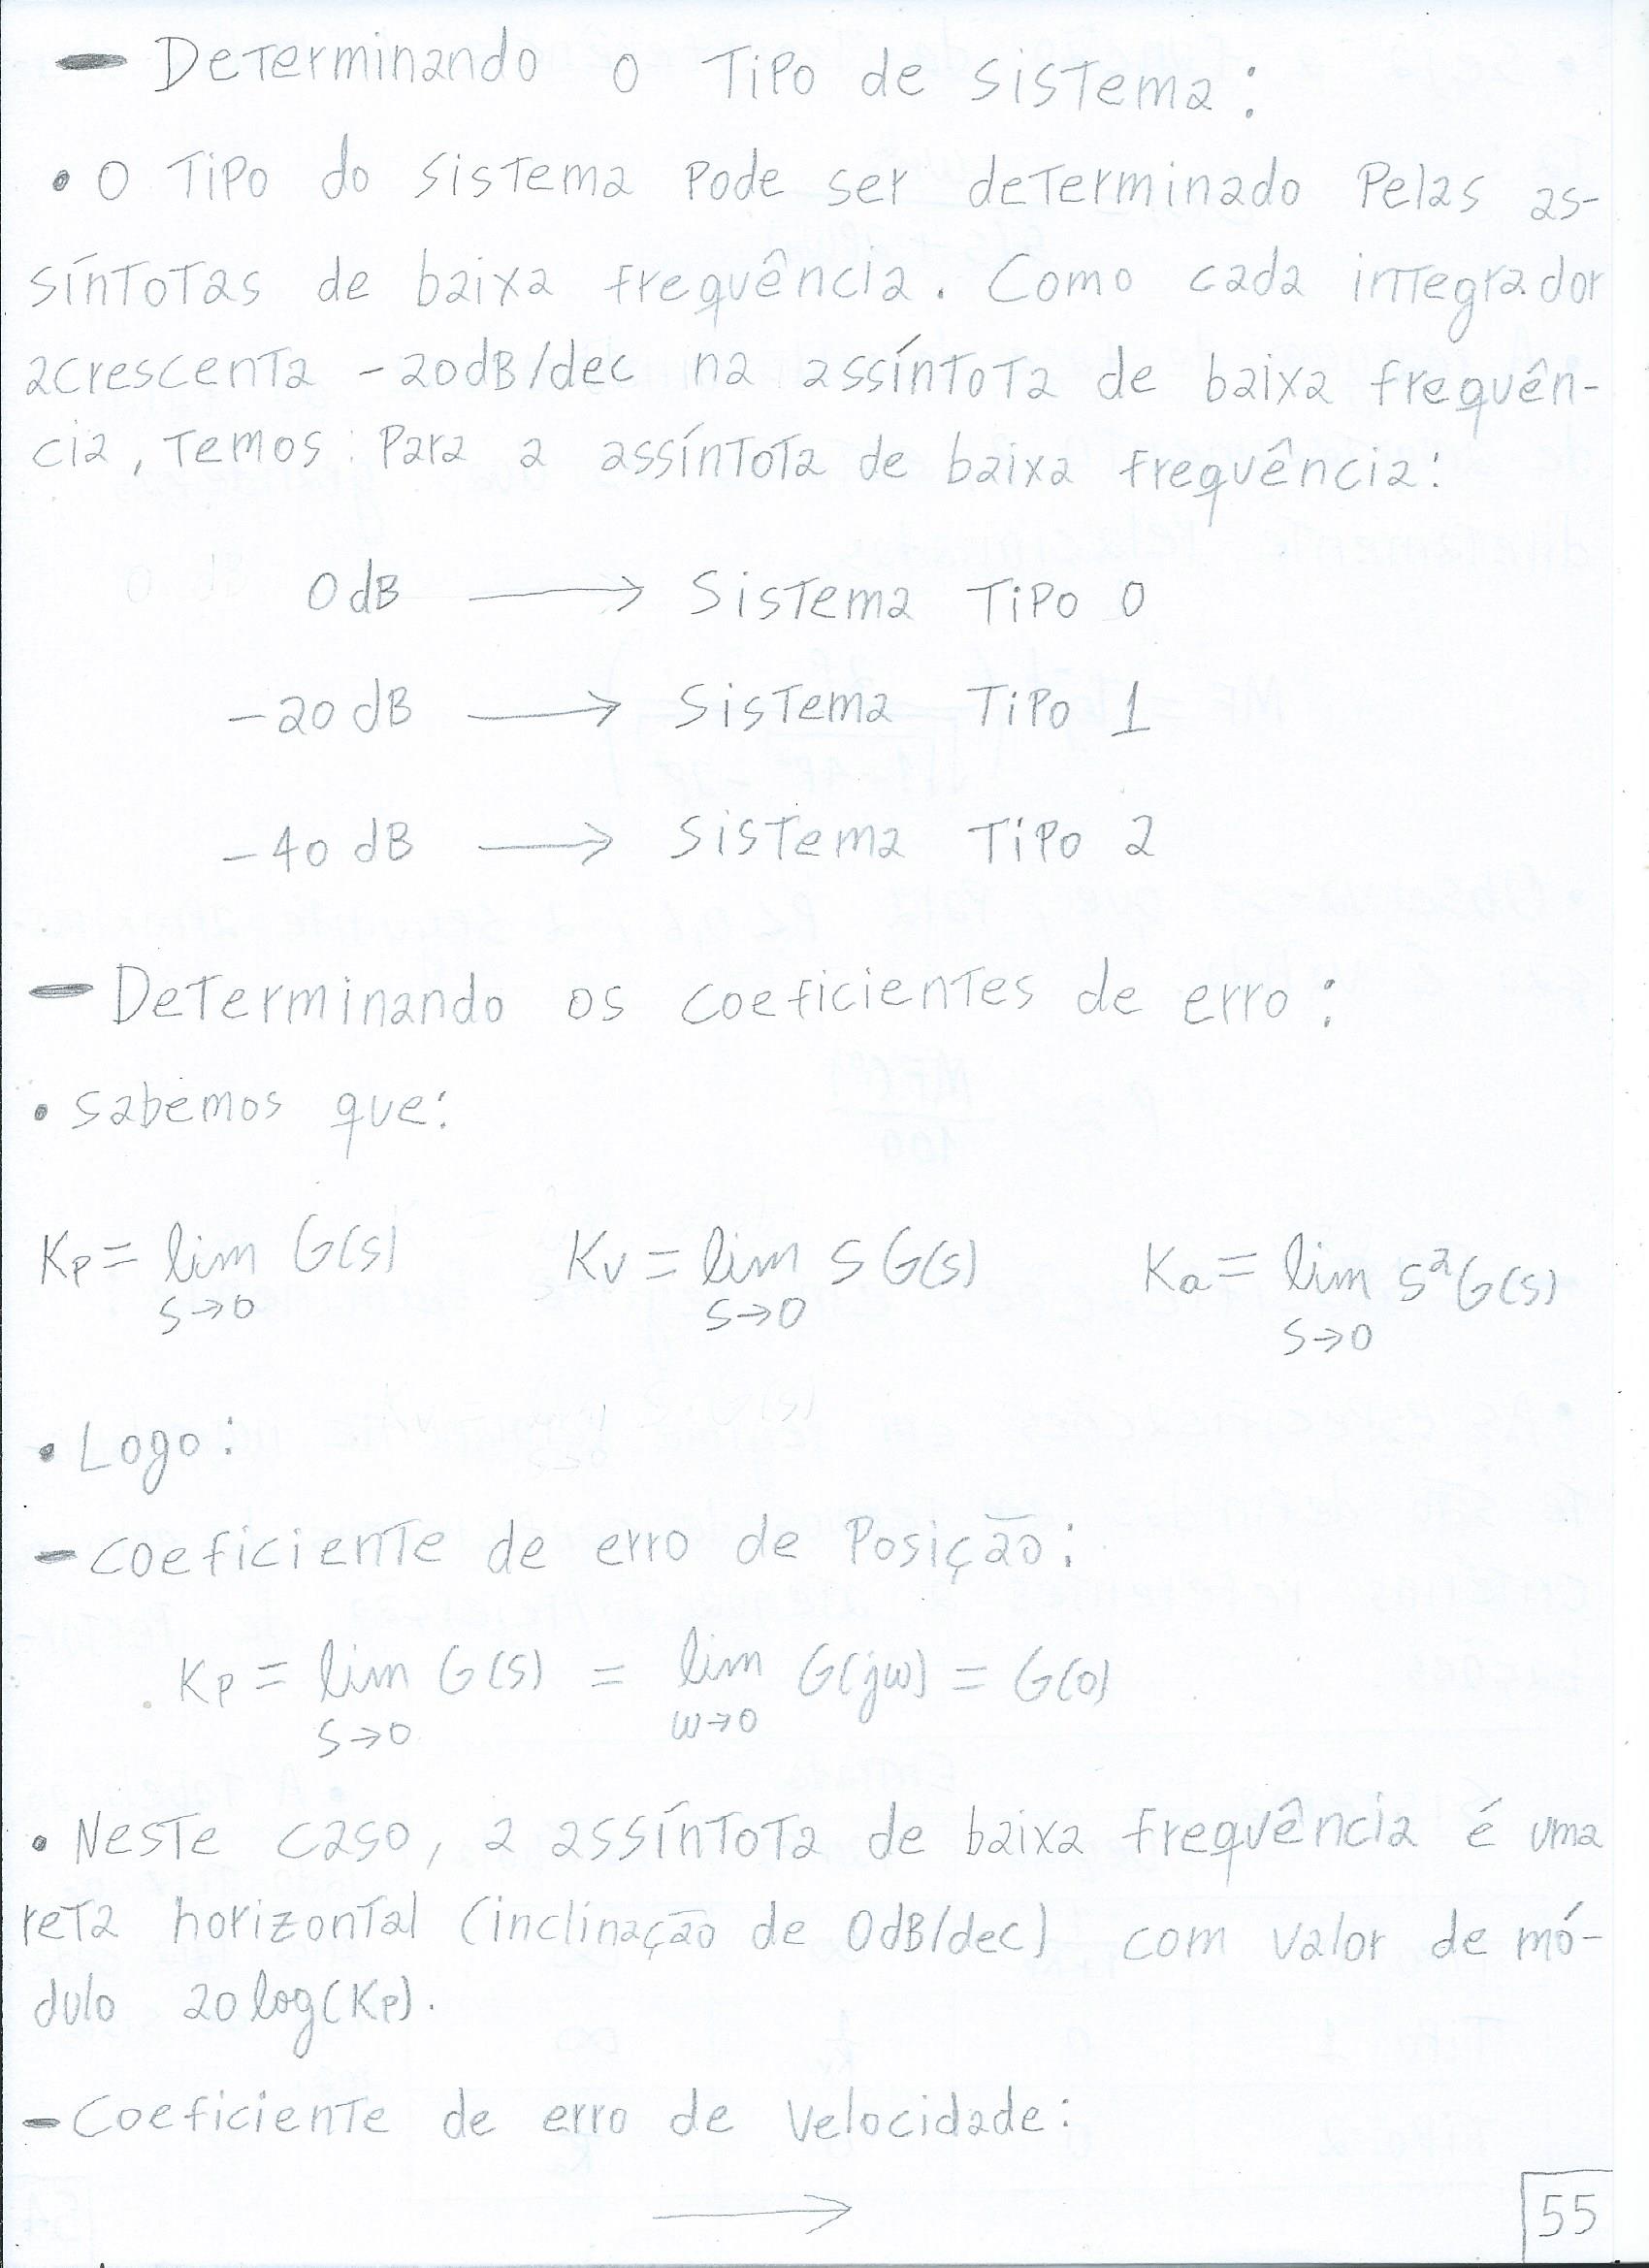 - Determinando o Tipo de sistema:
• O Tipo do sistema Pode ser determinado Pelas as-
síntotas de baixa frequência. Como cada integrador
acrescenta -20dB/dec na assíntota de baixa frequên-
cia, Temos: Para a assíntota de baixa frequência:
0 dB ⟶ Sistema Tipo 0
-20 dB ⟶ Sistema Tipo 1
-40 dB ⟶ Sistema Tipo 2
- Determinando os coeficientes de erro:
• Sabemos que:
Kp = lim G(s) Kv = lim s G(s) Ka = lim s²G(s)
s→0 s→0 s→0
• Logo:
- Coeficiente de erro de Posição:
Kp = lim G(s) = lim G(jw) = G(0)
s→0 w→0
• Neste caso, a assíntota de baixa frequência é uma
reta horizontal (inclinação de 0dB/dec) com valor de mó-
dulo 20log(Kp).
- Coeficiente de erro de Velocidade:
⟶
55